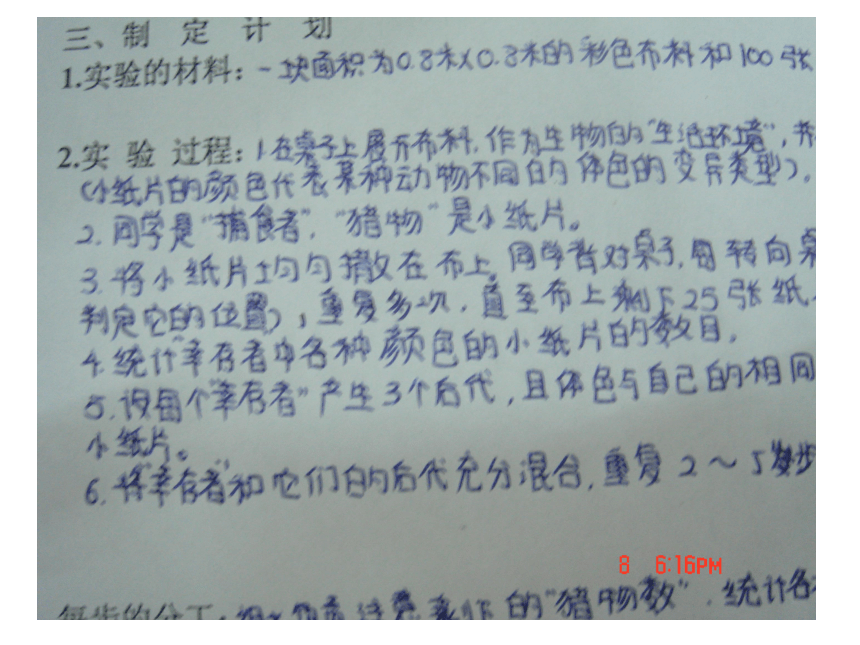 三、制 定 计 划
1.实验的材料：一块面积为0.8米×0.8米的彩色布料和100张
2.实 验 过程：1.在桌子上展开布料，作为生物的"生活环境"，并
（小纸片的颜色代表某种动物不同的体色的变异类型）。
2. 同学是"捕食者"，"猎物"是小纸片。
3. 将小纸片均匀撒在布上。同学背对桌子，每转向桌
判定它的位置），重复多次，直至布上剩下25张纸
4. 统计"幸存者"中各种颜色的小纸片的数目。
5. 设每个"幸存者"产生3个后代，且体色与自己的相同
小纸片。
6. 将"幸存者"和它们的后代充分混合，重复2～5步
每步的分工： 负责注意 的"猎物数"，统计各
8 6:16PM